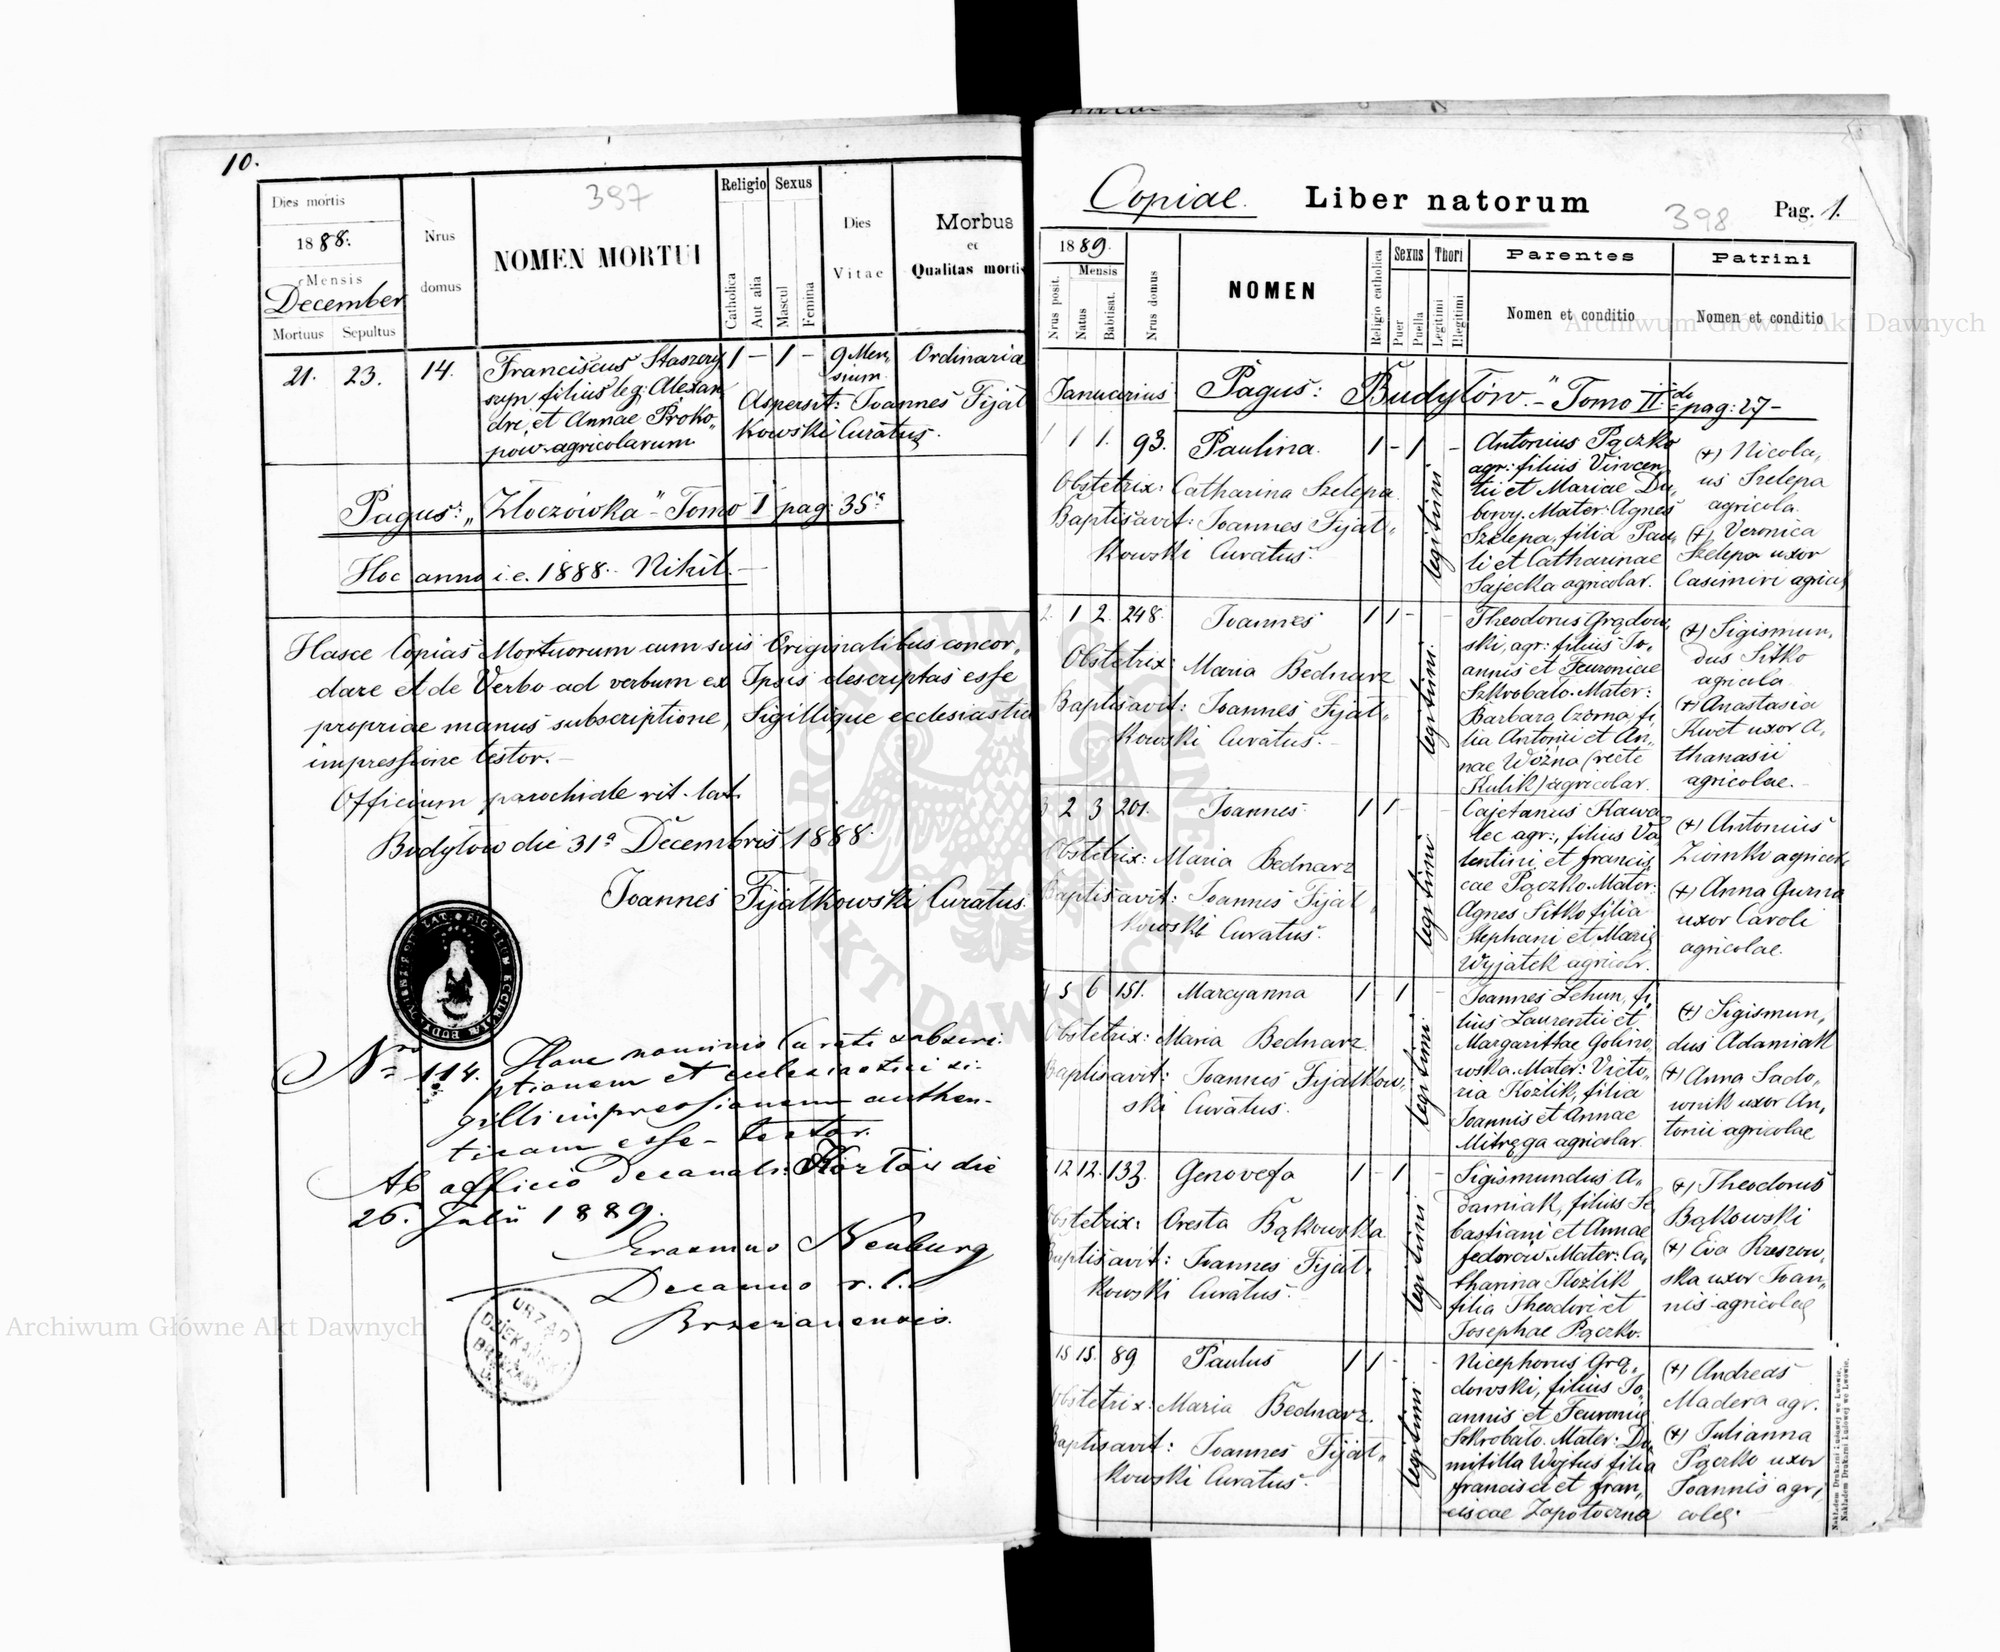 10.
397
Dies mortis
1888.
Mensis
December
Mortuus Sepultus
Nrus
domus
NOMEN MORTUI
Religio
Catholica
Aut alia
Sexus
Mascul
Femina
Dies
Vitae
Morbus
et
Qualitas mortis
21. 23. 14. Franciscus Staszczy 1 - 1 - 9 Men
szyn filius leg: Alexan sium Ordinaria
dri, et Annae Proko„ Aspersit: Joannes Fijał
pów agricolarum Kowski Curatus.
Pagus: „Złoczówka" Tomo I pag: 35ª
Hoc anno i.e. 1888. Nihil.
Hasce Copias Mortuorum cum suis Originalibus concor„
dare et de Verbo ad verbum ex Ipsis descriptas esse
propriae manus subscriptione, Sigillique ecclesiastici
impressione testor.
Officium parochiale rit. lat.
Budyłów die 31ª Decembris 1888.
Joannes Fijałkowski Curatus.
Nro 114. Hanc nominis Curati subscri-
ptionem et ecclesiastici si-
gilli impressionem authen-
ticam esse - testor.
Ab officio Decanali: Kozłów die
26. Julii 1889.
Erasmus Neuburg
Decanus r. l.
Brzezanensis.
URZĄD
DZIEKAŃSKI
Copiae. Liber natorum
398
Pag. 1.
1889.
Mensis
Nrus posit.
Natus
Babtisat.
Nrus domus
NOMEN
Religio catholica
Sexus
Puer
Puella
Thori
Legitimi
Illegitimi
Parentes
Nomen et conditio
Patrini
Nomen et conditio
Januarius Pagus: „Budyłów" - Tomo II di pag: 27-
1 1 1. 93. Paulina. 1 - 1 -
Obstetrix: Catharina Szelepa
Baptisavit: Joannes Fijał„
Kowski Curatus.
legitimi
Antonius Pączko
agr: filius Vincen
tii et Mariae Du„
bowy. Mater: Agnes
Szelepa, filia Pau„
li et Catharinae
Sajecka agricolar.
(+) Nicola„
us Szelepa
agricola.
(+) Veronica
Szelepa uxor
Casimiri agricol
2. 1 2. 248. Joannes 1 1 - -
Obstetrix: Maria Bednarz
Baptisavit: Joannes Fijał„
Kowski Curatus.
legitimi
Theodorus Grądow„
ski, agr: filius Jo„
annis et Feuroniae
Szkrobało. Mater:
Barbara Czorna fi„
lia Antonii et An„
nae Wózna (recte
Kulik) agricolar.
(+) Sigismun„
dus Sitko
agricola
(+) Anastasia
Kwet uxor A„
thanasii
agricolae.
3 2 3 201. Joannes. 1 1 -
Obstetrix: Maria Bednarz
Baptisavit: Joannes Fijał„
Kowski Curatus.
legitimi
Cajetanus Kawa„
lec agr:, filius Va„
lentini et Francis„
cae Pączko. Mater:
Agnes Sitko filia
Stephani et Marię
Wyjatek agricolr.
(+) Antonius
Ziomki agricola
(+) Anna Gurna
uxor Caroli
agricolae.
4 5 6 151. Marcyanna 1 1 -
Obstetrix: Maria Bednarz
Baptisavit: Joannes Fijałkow„
ski Curatus.
legitimi
Joannes Lehun, fi„
lius Laurentii et
Margarittae Golino„
wska. Mater: Victo„
ria Kozlik, filia
Joannis et Annae
Mitręga agricolar.
(+) Sigismun„
dus Adamiak
(+) Anna Sado„
wnik uxor An„
tonii agricolae
12 12. 133. Genovefa 1 - 1 -
Obstetrix: Oresta Bąkowska
Baptisavit: Joannes Fijał„
Kowski Curatus.
legitimi
Sigismundus A„
damiak, filius Se„
bastiani et Annae
Fedorów. Mater: Ca„
tharina Kozlik
filia Theodori et
Josephae Pączko.
(+) Theodorus
Bąkowski
(+) Eva Rzeszow„
ska uxor Joan„
nis agricolaę
15 15. 89 Paulus 1 1 - -
Obstetrix: Maria Bednarz.
Baptisavit: Joannes Fijał„
Kowski Curatus.
legitimi
Nicephorus Grą„
dowski, filius Jo„
annis et Feuronię
Szkrobało. Mater: Do„
mitilla Wojtus filia
Francisci et Fran„
ciscae Zapotoczna
(+) Andreas
Madera agr.
(+) Julianna
Pączko uxor
Joannis agri„
colaę.
Nakładem Drukarni Ludowej we Lwowie.
Nakładem Drukarni Ludowej we Lwowie.
Archiwum Główne Akt Dawnych
Archiwum Główne Akt Dawnych
ARCHIWUM GŁÓWNE AKT DAWNYCH